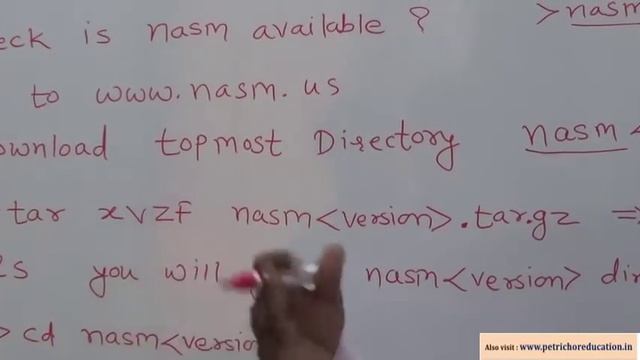 eck is nasm available ? >nasm
to www.nasm.us
ownload topmost Directory nasm<
tar xvzf nasm<version>.tar.gz =>
es you will nasm<version> dir
> cd nasm<versio
Also visit : www.petrichoreducation.in